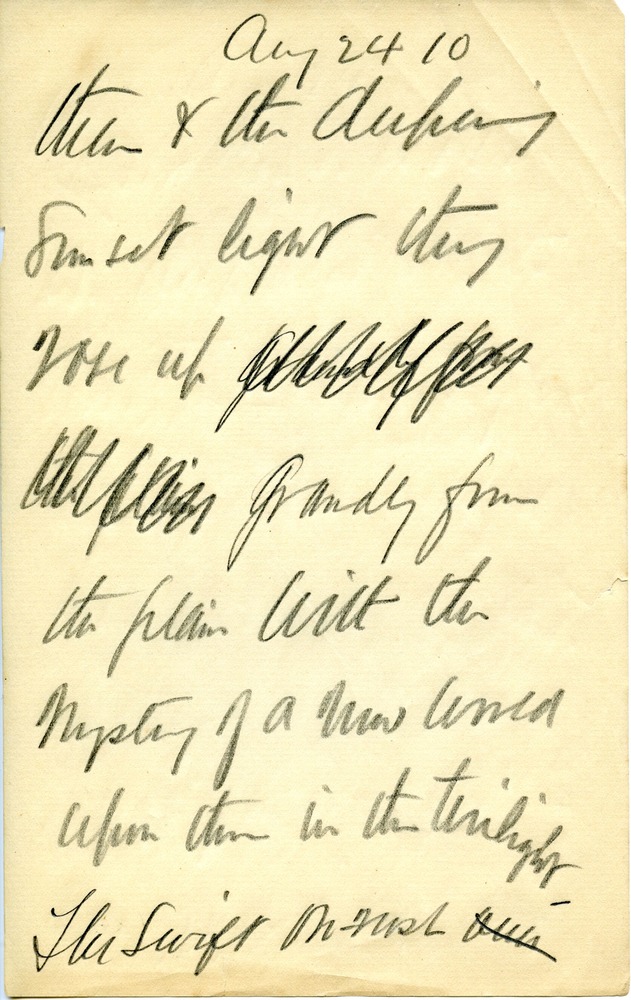 Aug 24 10
them & the deepening
Sunset light they
rose up
grandly from
the plain with the
Mystery of a new world
upon them in the twilight
The swift on-rush